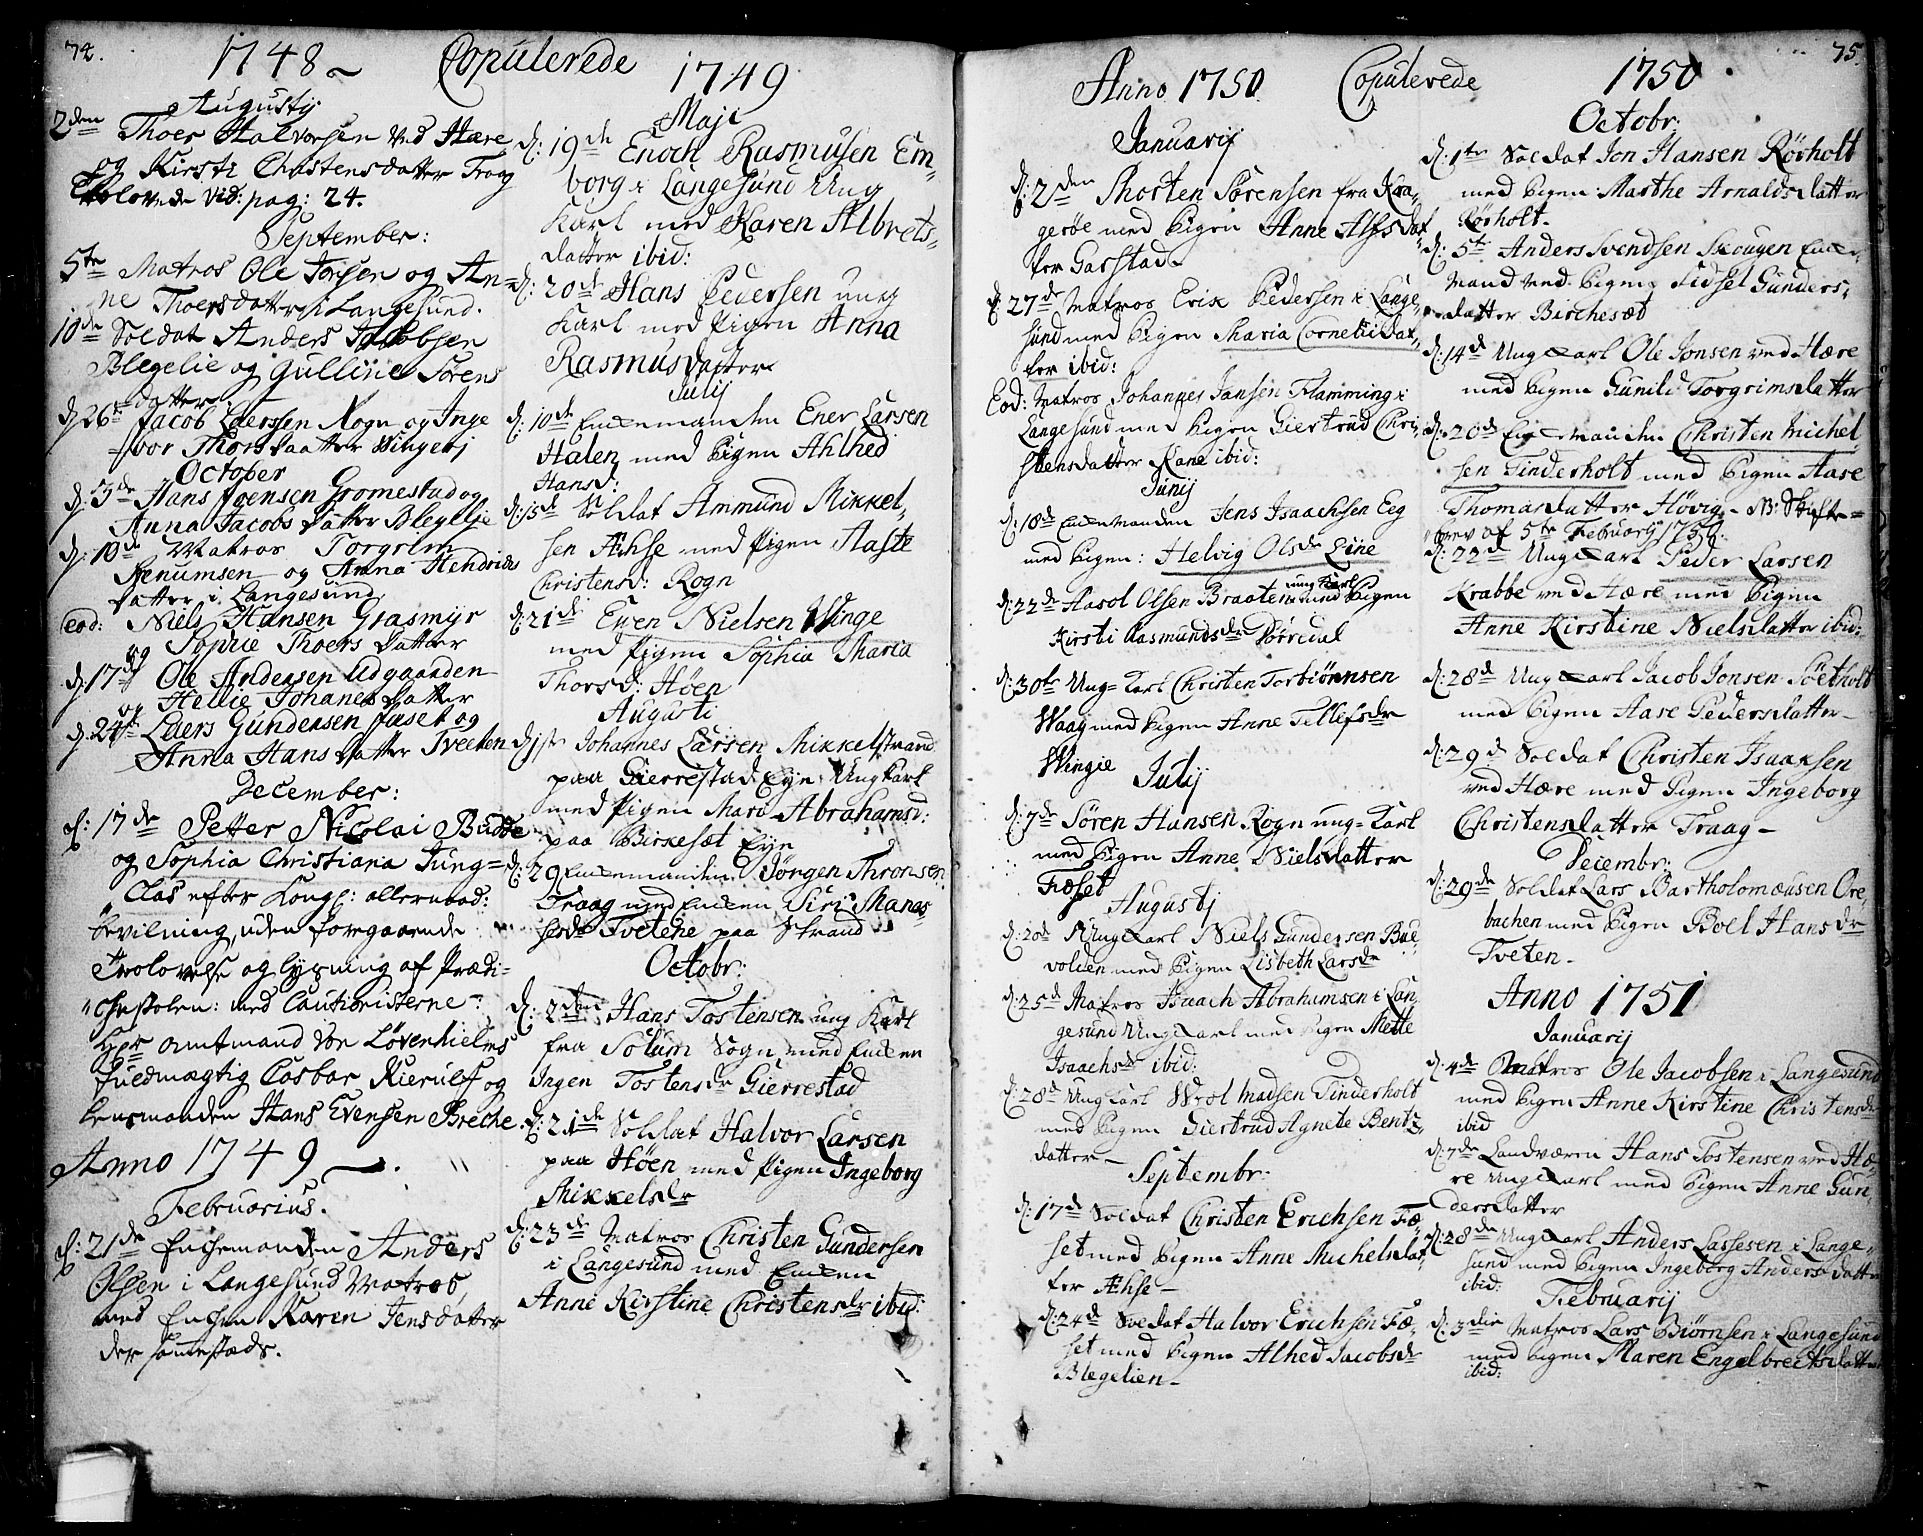 74.
1748 Copulerede
Augustij.
2den Thoer Halvorsen ved Hære
og Kirsti Christensdatter Traag
Trolovede vid: pag: 24.
September:
5te Matros Ole Jorsen og An=
ne Thoersdatter i Langesund.
10de Soldat Anders Jacobsen
Blegelie og Gulline Sörens
datter
d: 26te Jacob Laerssen Rogn og Inge
bor Thorsdaatter Wingerj
October
d: 3de Hans Joensen Gromestad og
Anna Jacobs Datter Blegelje
d: 10de Matros Torgrim
Stenumsen og Anna Hendrichs
datter i Langesund
eod: Niels Hansen Grasmyr
og Sophie Thoers Datter
d: 17de Ole Andersen Udgaarden
og Hellie Johanes Datter
d: 24de Laers Gundersen Fæset og
Anna Hans Datter Tveeten
December:
d: 17de Petter Nicolai Budde
og Sophia Christiana Jung=
Clas efter Kongl: allernaad:
bevilning, uden foregaaende
Trolovelse og lysning af Prædi=
chestolen: med Cautionisterne
Her Amtmand von Lövenhielms
fuldmægtig Casbar Kierulf og
Lensmanden Hans Evensen Breche.
Anno 1749
Februarius.
d: 21de Enchemanden Anders
Olsen i Langesund Matros
med Enchen Karen Jensdatter
der sammestæds.
1749
Maji
d: 19de Enoch Rasmusen Em=
borg i Langesund Ung
Karl med Karen Albrets=
datter ibid:
d: 20de Hans Pedersen ung
Karl med Pigen Anna
Rasmusdatter
Julij
d: 10de Enkemanden Ener Larsen
Halen med Pigen Ahlhed
Hansd:
d: 15de Soldat Ammund Mikkel,
sen Æhse med Pigen Aaste
Christensd: Rogn
d: 21de Even Nielsen Winge
med Pigen Sophia Maria
Thorsd: Höen
Augusti
d: 1ste Johannes Larsen Mikkelstrand
paa Gierrestad Eye Ungkarl
med Pigen Mari Abrahamsd:
paa Birkesæt Eye
d: 29 Enkemanden Jörgen Thronsen
Traag med Enken Siri Manes
sesdr Tvetene paa Strand
Octobr:
d: 2den Hans Tostensen ung Karl
fra Solum Sogn med Enken
Ingen Tostensdr Gierrestad
d: 21de Soldat Halvor Larsen
paa Höen med Pigen Ingeborg
Mikkelsdr
d: 23de Matros Christen Gundersen
i Langesund med Enken
Anne Kirstine Christensdr ibid:
Anno 1750 Copulerede
Januarij
d: 2den Thorsten Sörensen fra Kra,
geröe med Pigen Anne Alfsdat
ter Gasstad
d: 27de Matros Erik Pedersen i Lange,
sund med Pigen Maria Cornelidat,
ter ibid:
Eod: Matros Johannes Jansen Flamming i
Langesund med Pigen Giertrud Chri,
stensdatter Kane ibid:
Junij
d: 10de Enkemanden Jens Isaachsen Eeg
med Pigen: Helvig Olsdr Liine
d: 22de Aasol Olsen Braaten ung karl med Pigen
Kirsti Rasmundsdr Böredal
d: 30te Ung=Karl Christen Torbiörnsen
Waag med Pigen Anne Tellefsdr
Wingie
Julij
d: 7de Sören Hansen Rogn ung=Karl
med Pigen Anne Nielsdatter
Fæset
Augustj
d: 20de Ung Karl Niels Gundersen Bue,
volden med Pigen Lisbeth Larsdr
d: 25de Matros Isaach Abrahamsen i Lan,
gesund Ungkarl med Pigen Mette
Isaachsdr ibid:
d: 28de Ung Karl Wrol Madsen Tinderholt
med Pigen Giertrud Agnete Bentz,
datter
Septembr:
d: 17de Soldat Christen Erichsen Fæ,
set med Pigen Anne Michelsdat
ter Æhse
d: 24de Soldat Halvor Erichsen Fæ,
set med Pigen Alhed Jacobsdr
Blegelien
75.
1750
Octobr:
d: 1te Soldat Jon Hansen Rörholt
med Pigen Marthe Arnaldsdatter
Rörholt.
d: 5te Anders Svendsen Skougen Enke,
mand med Pigen Sidsel Gunders,
datter Birchesæt
d: 14de Ung Karl Ole Jonsen ved Hære
med Pigen Gunild Torgrimsdatter
d: 20de Enkemanden Christen Michel
sen Tinderholt med Pigen Aase
Thomasdatter Hövig NB: Skifte=
brev af 5te Februarij 1750.
d: 22de Ung Karl Peder Larsen
Krabbe ved Hære med Pigen
Anne Kirstine Nielsdatter ibid:
d: 28de Ung Karl Jacob Jonsen Söetholt
med Pigen Aase Pedersdatter
d: 29de Soldat Christen Isaaksen
ved Hære med Pigen Ingeborg
Christensdatter Traag
Decembr:
d: 29de Soldat Lars Bartholomæusen Ore,
bachen med Pigen Boel Hansdr
Tveten
Anno 1751
Januarij
d: 4de Matros Ole Jacobsen i Langesund
med Pigen Anne Kirstine Christensdr
ibid
d: 7de Landværen Hans Tostensen ved Hæ,
re Ung Karl med Pigen Anne Gun
dersdatter
d: 28de Ung Karl Anders Lassesen i Lange,
sund med Pigen Ingeborg Andersdatter
ibid:
Februarij
d: 3die Matros Lars Biörnsen i Langesund
med Pigen Maren Engelbrectsdatter
ibid: